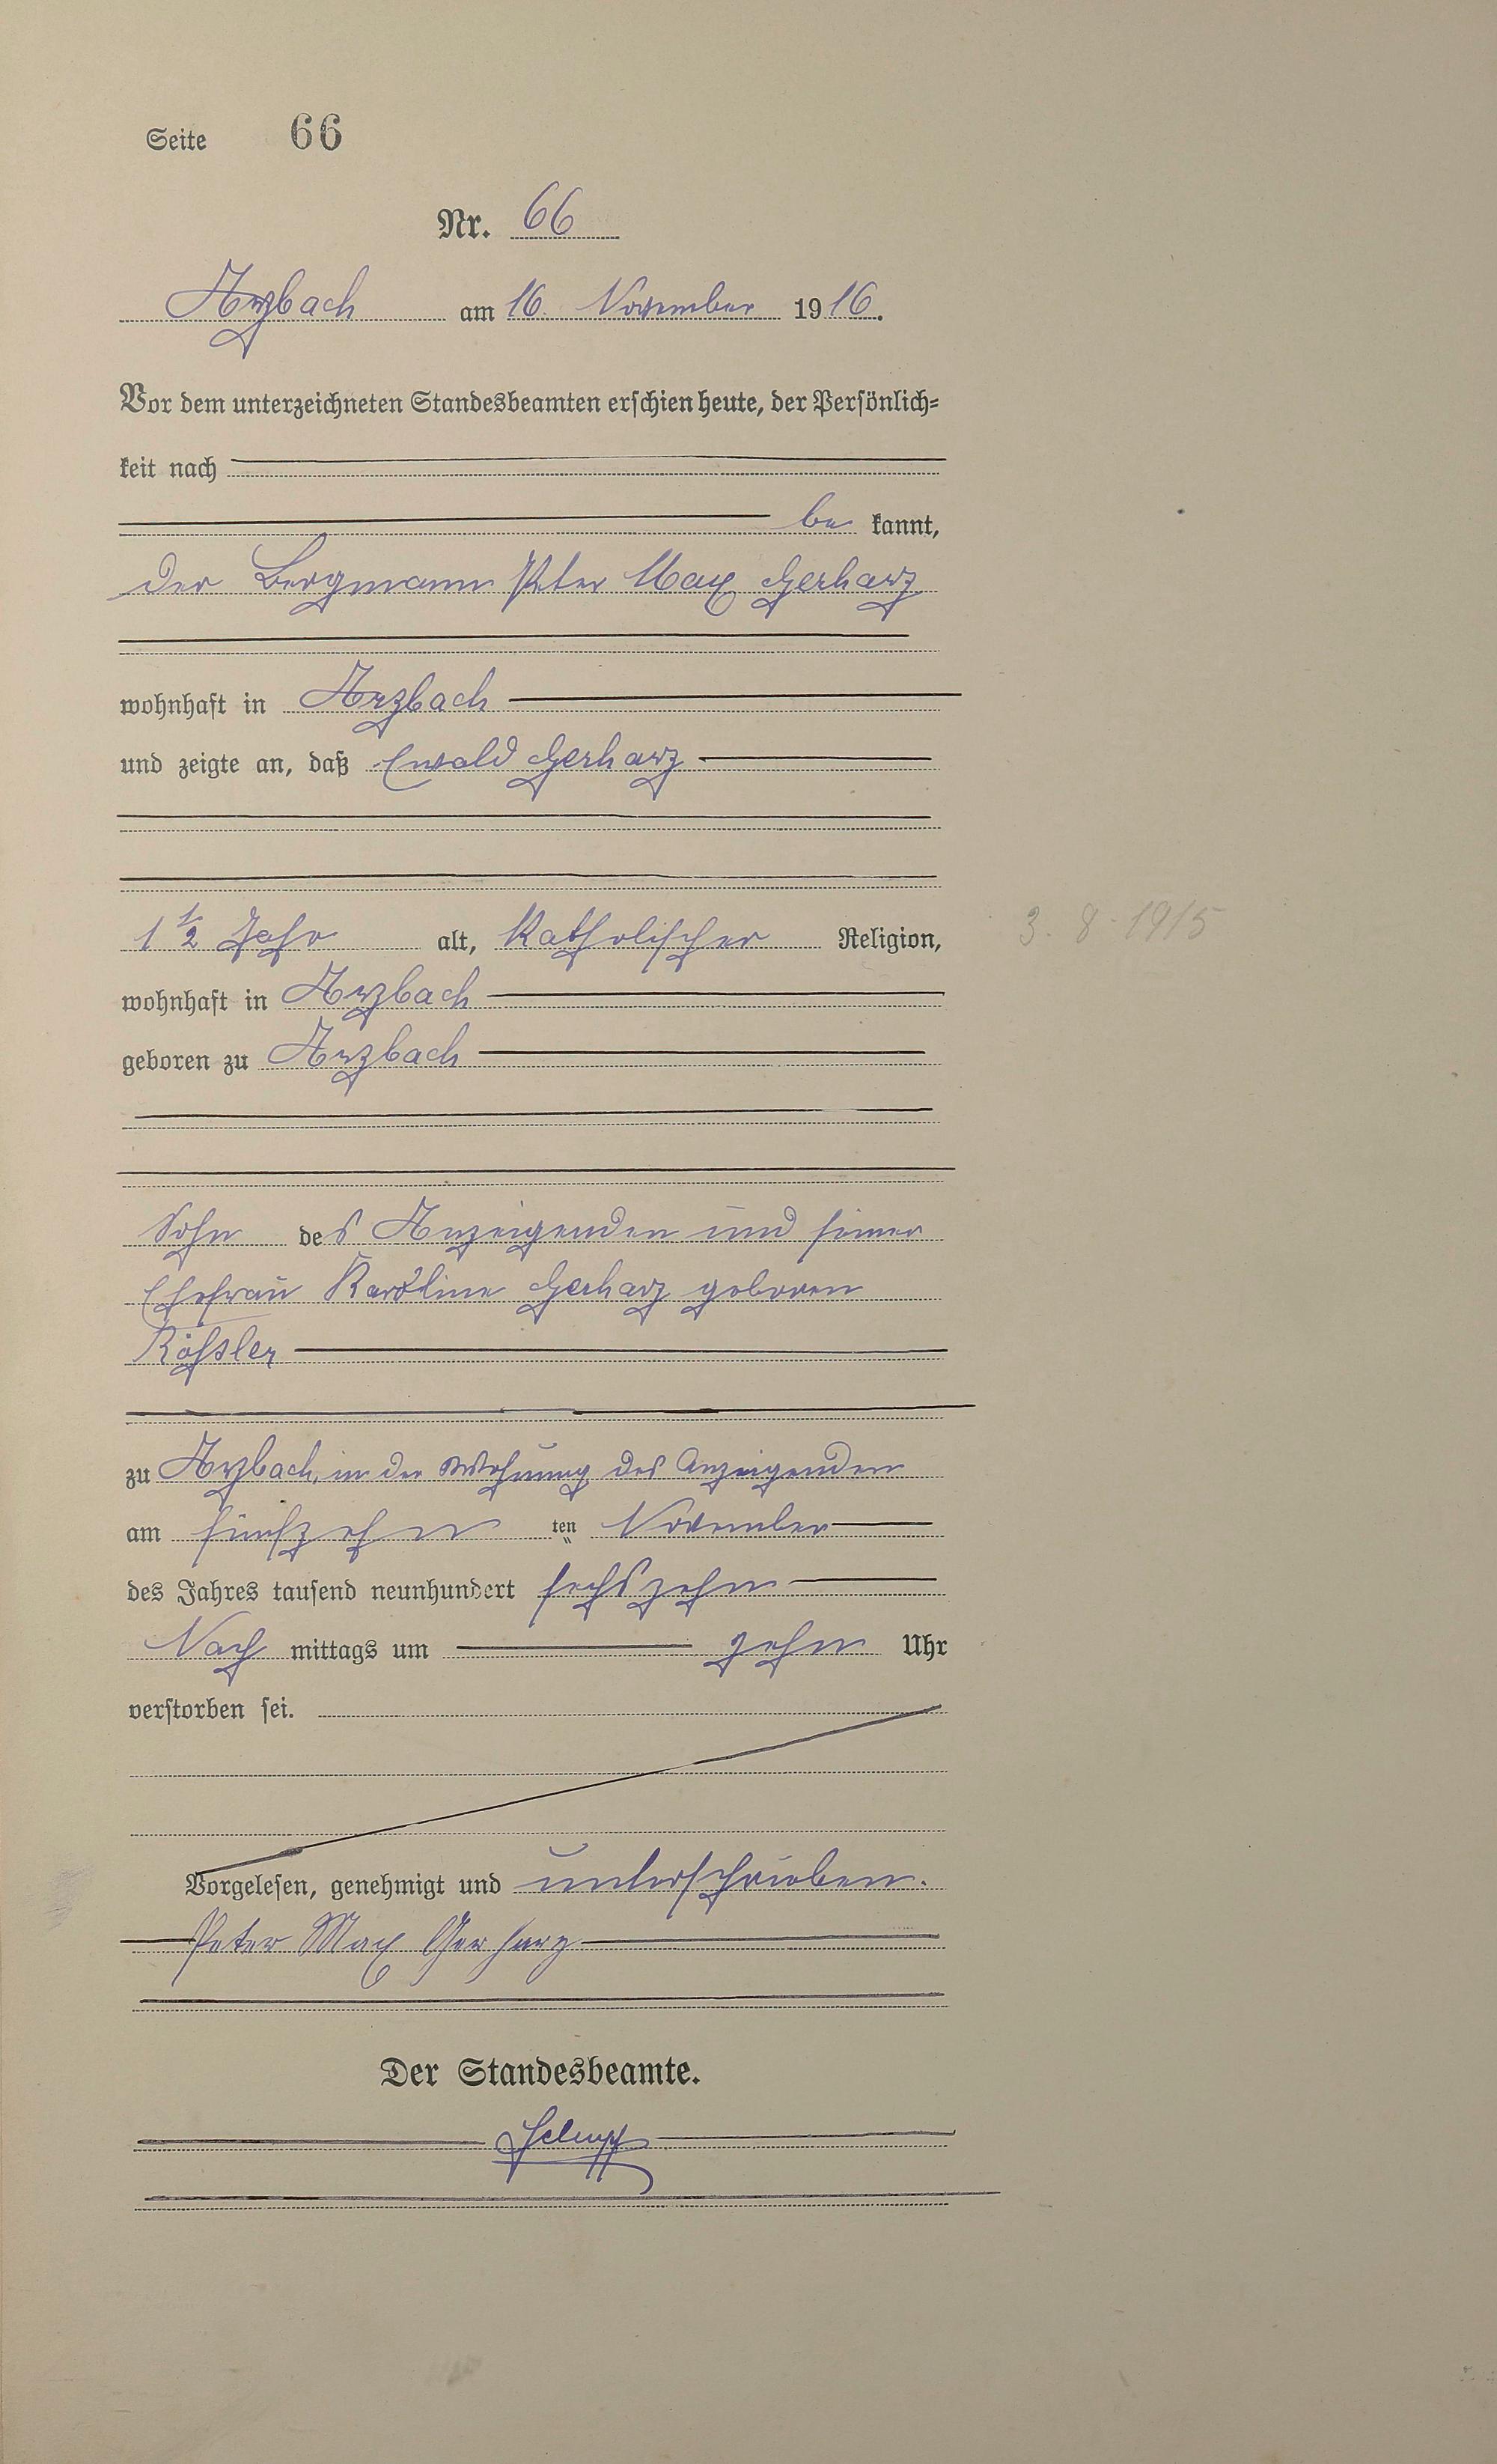 Seite 66
Nr. 66
Arzbach am 16. November 1916.
Vor dem unterzeichneten Standesbeamten erschien heute, der Persönlich=
keit nach
be kannt,
der Bergmann Peter Max Gerharz
wohnhaft in Arzbach
und zeigte an, daß Ewald Gerharz
1 1/2 Jahr alt, Katholischer Religion,
3. 8. 1915
wohnhaft in Arzbach
geboren zu Arzbach
Sohn des Anzeigenden und seiner
Ehefrau Karoline Gerharz geboren
Rößler
zu Arzbach, in der Wohnung des Anzeigenden
am fünfzehn ten November
des Jahres tausend neunhundert sechszehn
Nach mittags um zehn Uhr
verstorben sei.
Vorgelesen, genehmigt und unterschrieben.
Peter Max Gerharz
Der Standesbeamte.